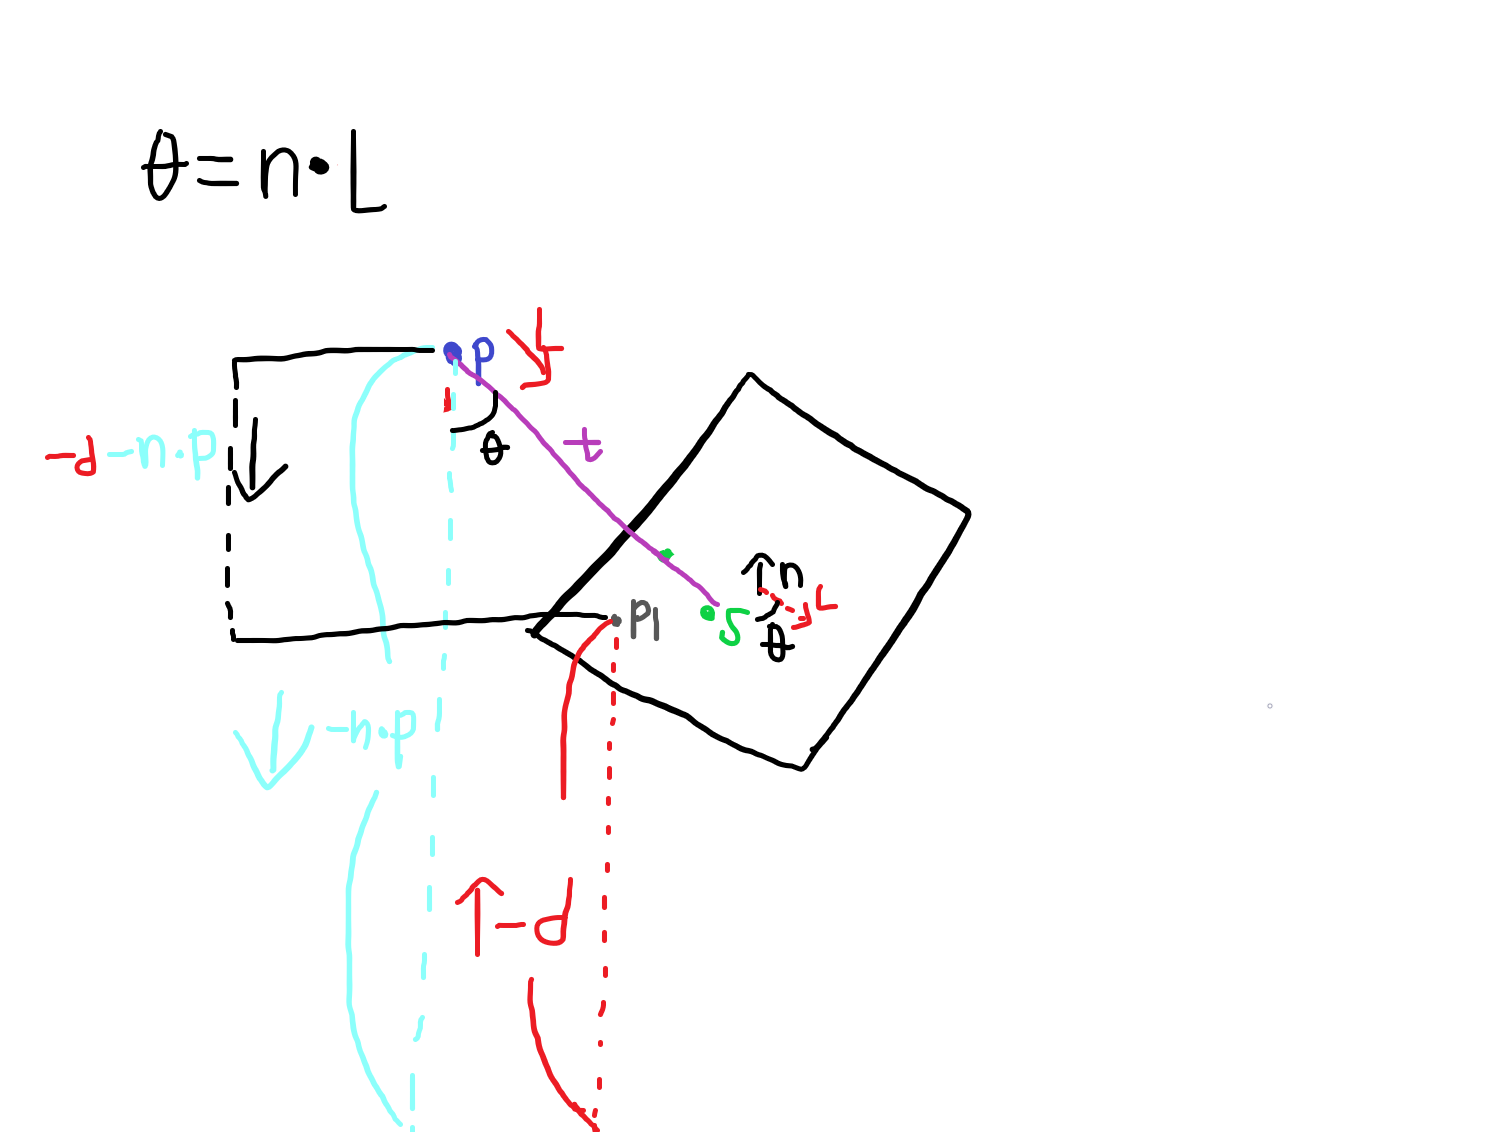 θ=n·L
p L
θ
t
-d-n·p
n
L
p1
s
θ
-n·p
-d